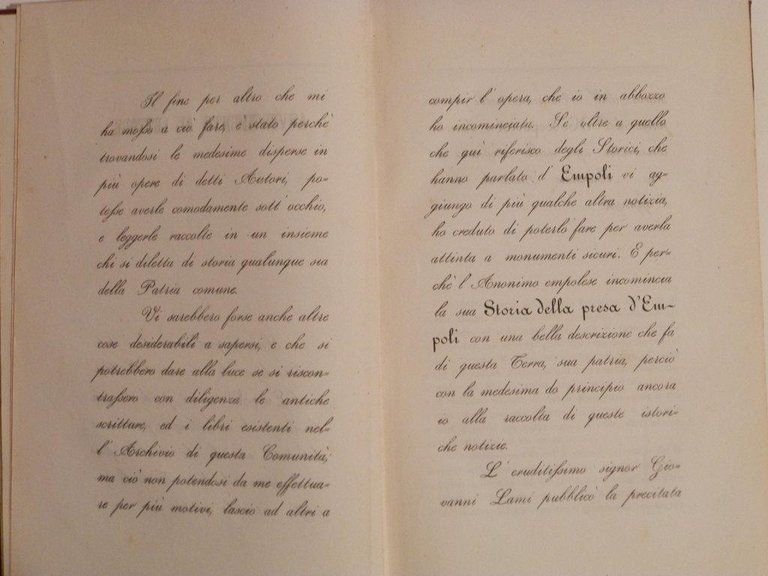 Il fine per altro che mi
ha moſso a ciò fare, è stato perchè
trovandosi le medesime disperse in
più opere di detti Autori, po-
teſse averle comodamente sott' occhio,
e leggerle raccolte in un insieme
chi si diletta di storia qualunque sia
della Patria comune.
Vi sarebbero forse anche altre
cose desiderabili a sapersi, e che si
potrebbero dare alla luce se si riscon-
traſsero con diligenza le antiche
scritture, ed i libri esistenti nel-
l' Archivio di questa Comunità;
ma ciò non potendosi da me effettua-
re per più motivi, lascio ad altri a
compir l' opera, che io in abbozzo
ho incominciata. Se oltre a quello
che quì riferisco degli Storici, che
hanno parlato d' Empoli vi ag-
giungo di più qualche altra notizia,
ho creduto di poterlo fare per averla
attinta a monumenti sicuri. E per-
chè l' Anonimo empolese incomincia
la sua Storia della presa d'Em-
poli con una bella descrizione che fa
di questa Terra, sua patria, perciò
con la medesima do principio ancora
io alla raccolta di queste istori-
che notizie.
L' eruditiſsimo signor Gio-
vanni Lami pubblicò la precitata